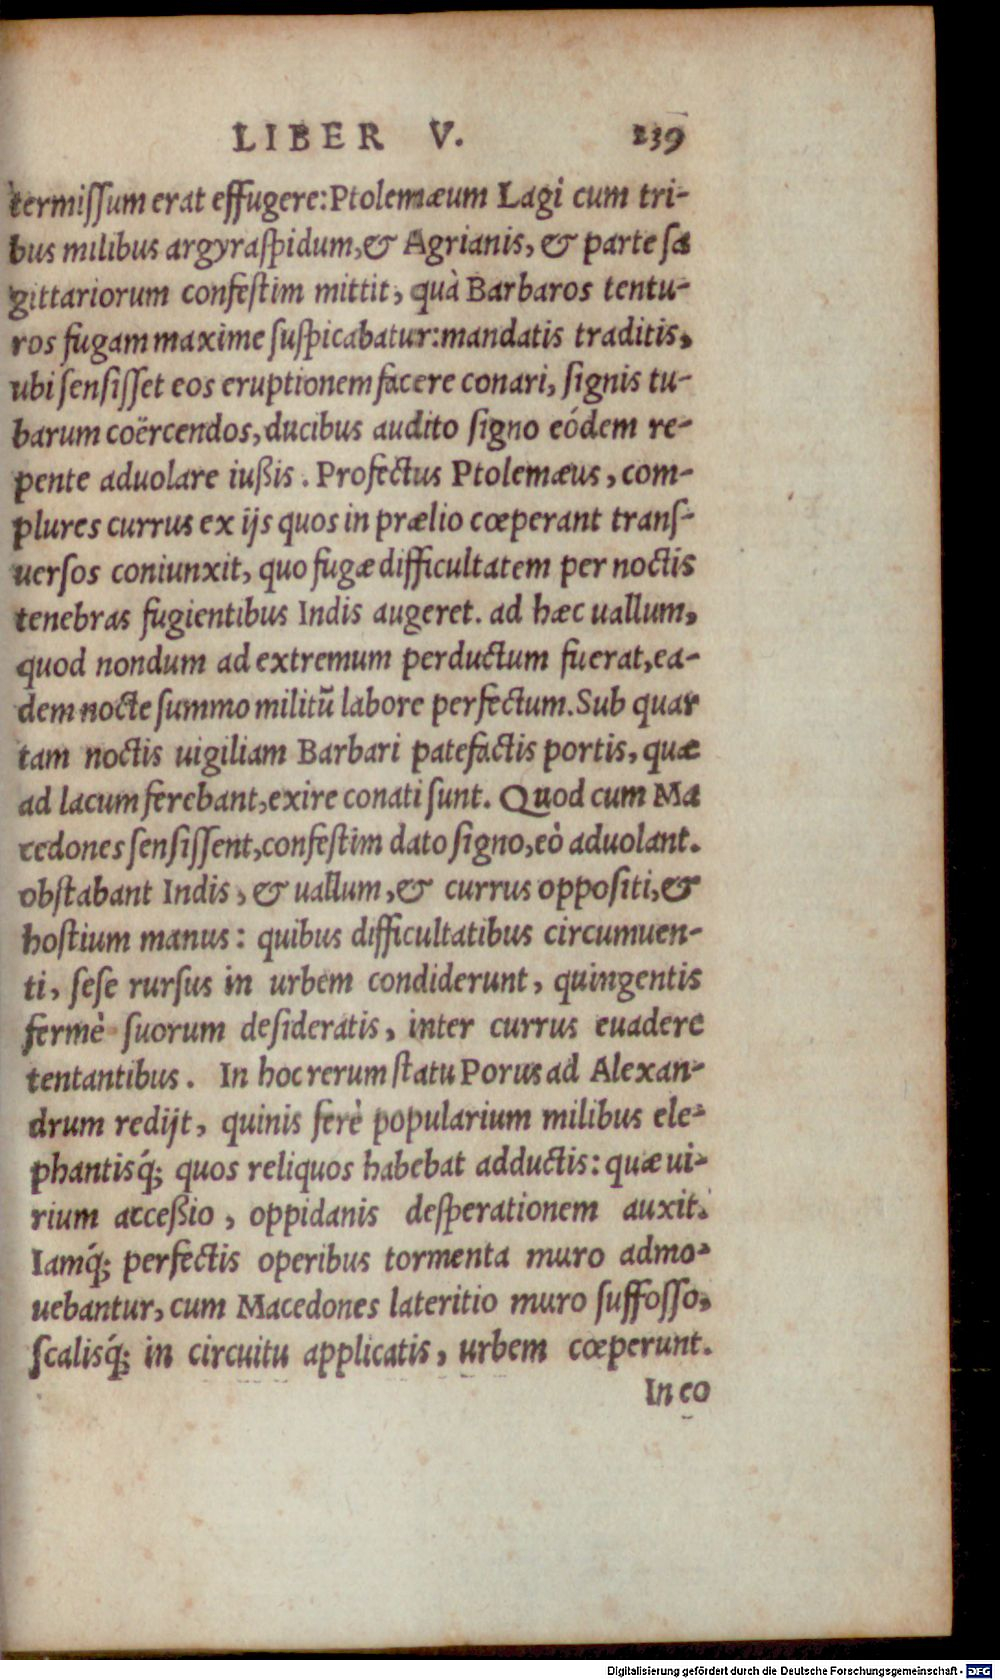 LIBER V. 239
termissum erat effugere: Ptolemæum Lagi cum tri-
bus milibus argyraspidum, & Agrianis, & parte sa
gittariorum confestim mittit, quà Barbaros tentu-
ros fugam maxime suspicabatur: mandatis traditis,
ubi sensisset eos eruptionem facere conari, signis tu-
barum coërcendos, ducibus audito signo eódem re-
pente aduolare iußis. Profectus Ptolemæus, com-
plures currus ex ijs quos in prælio cœperant trans-
uersos coniunxit, quo fugæ difficultatem per noctis
tenebras fugientibus Indis augeret. ad hæc uallum,
quod nondum ad extremum perductum fuerat, ea-
dem nocte summo militū labore perfectum. Sub quar
tam noctis uigiliam Barbari patefactis portis, quæ
ad lacum ferebant, exire conati sunt. Quod cum Ma
cedones sensissent, confestim dato signo, eò aduolant.
obstabant Indis, & uallum, & currus oppositi, &
hostium manus: quibus difficultatibus circumuen-
ti, sese rursus in urbem condiderunt, quingentis
fermè suorum desideratis, inter currus euadere
tentantibus. In hoc rerum statu Porus ad Alexan-
drum redijt, quinis ferè popularium milibus ele-
phantisq́; quos reliquos habebat adductis: quæ ui-
rium acceßio, oppidanis desperationem auxit.
Iamq́; perfectis operibus tormenta muro admo-
uebantur, cum Macedones lateritio muro suffosso,
scalisq́; in circuitu applicatis, urbem cœperunt.
In eo
Digitalisierung gefördert durch die Deutsche Forschungsgemeinschaft - DFG